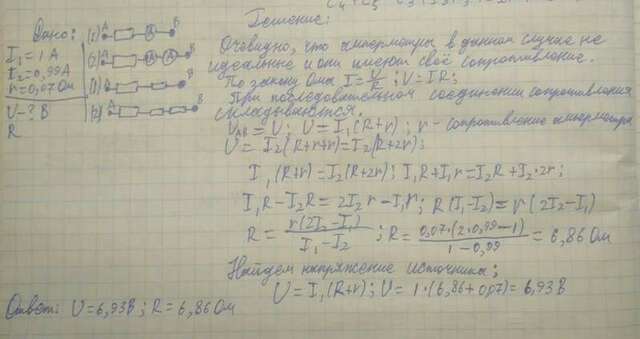 Дано:
I₁ = 1 А
I₂ = 0,99 А
r = 0,07 Ом
U - ? В
R
(1) A A B
(2) A A A B
(1) A B
(2) A B
Решение:
Очевидно, что амперметры в данном случае не
идеальные и они имеют своё сопротивление.
По закону Ома I = U/R; U = IR;
При последовательном соединении сопротивления
складываются.
U_AB = U; U = I₁(R+r); r - сопротивление амперметра
U = I₂(R+r+r) = I₂(R+2r);
I₁(R+r) = I₂(R+2r); I₁R+I₁r = I₂R+I₂·2r;
I₁R - I₂R = 2I₂r - I₁r; R(I₁-I₂) = r(2I₂-I₁)
R = r(2I₂-I₁)/(I₁-I₂); R = 0,07·(2·0,99-1)/(1-0,99) = 6,86 Ом
Найдем напряжение источника:
U = I₁(R+r); U = 1·(6,86+0,07) = 6,93 В
Ответ: U = 6,93 В; R = 6,86 Ом